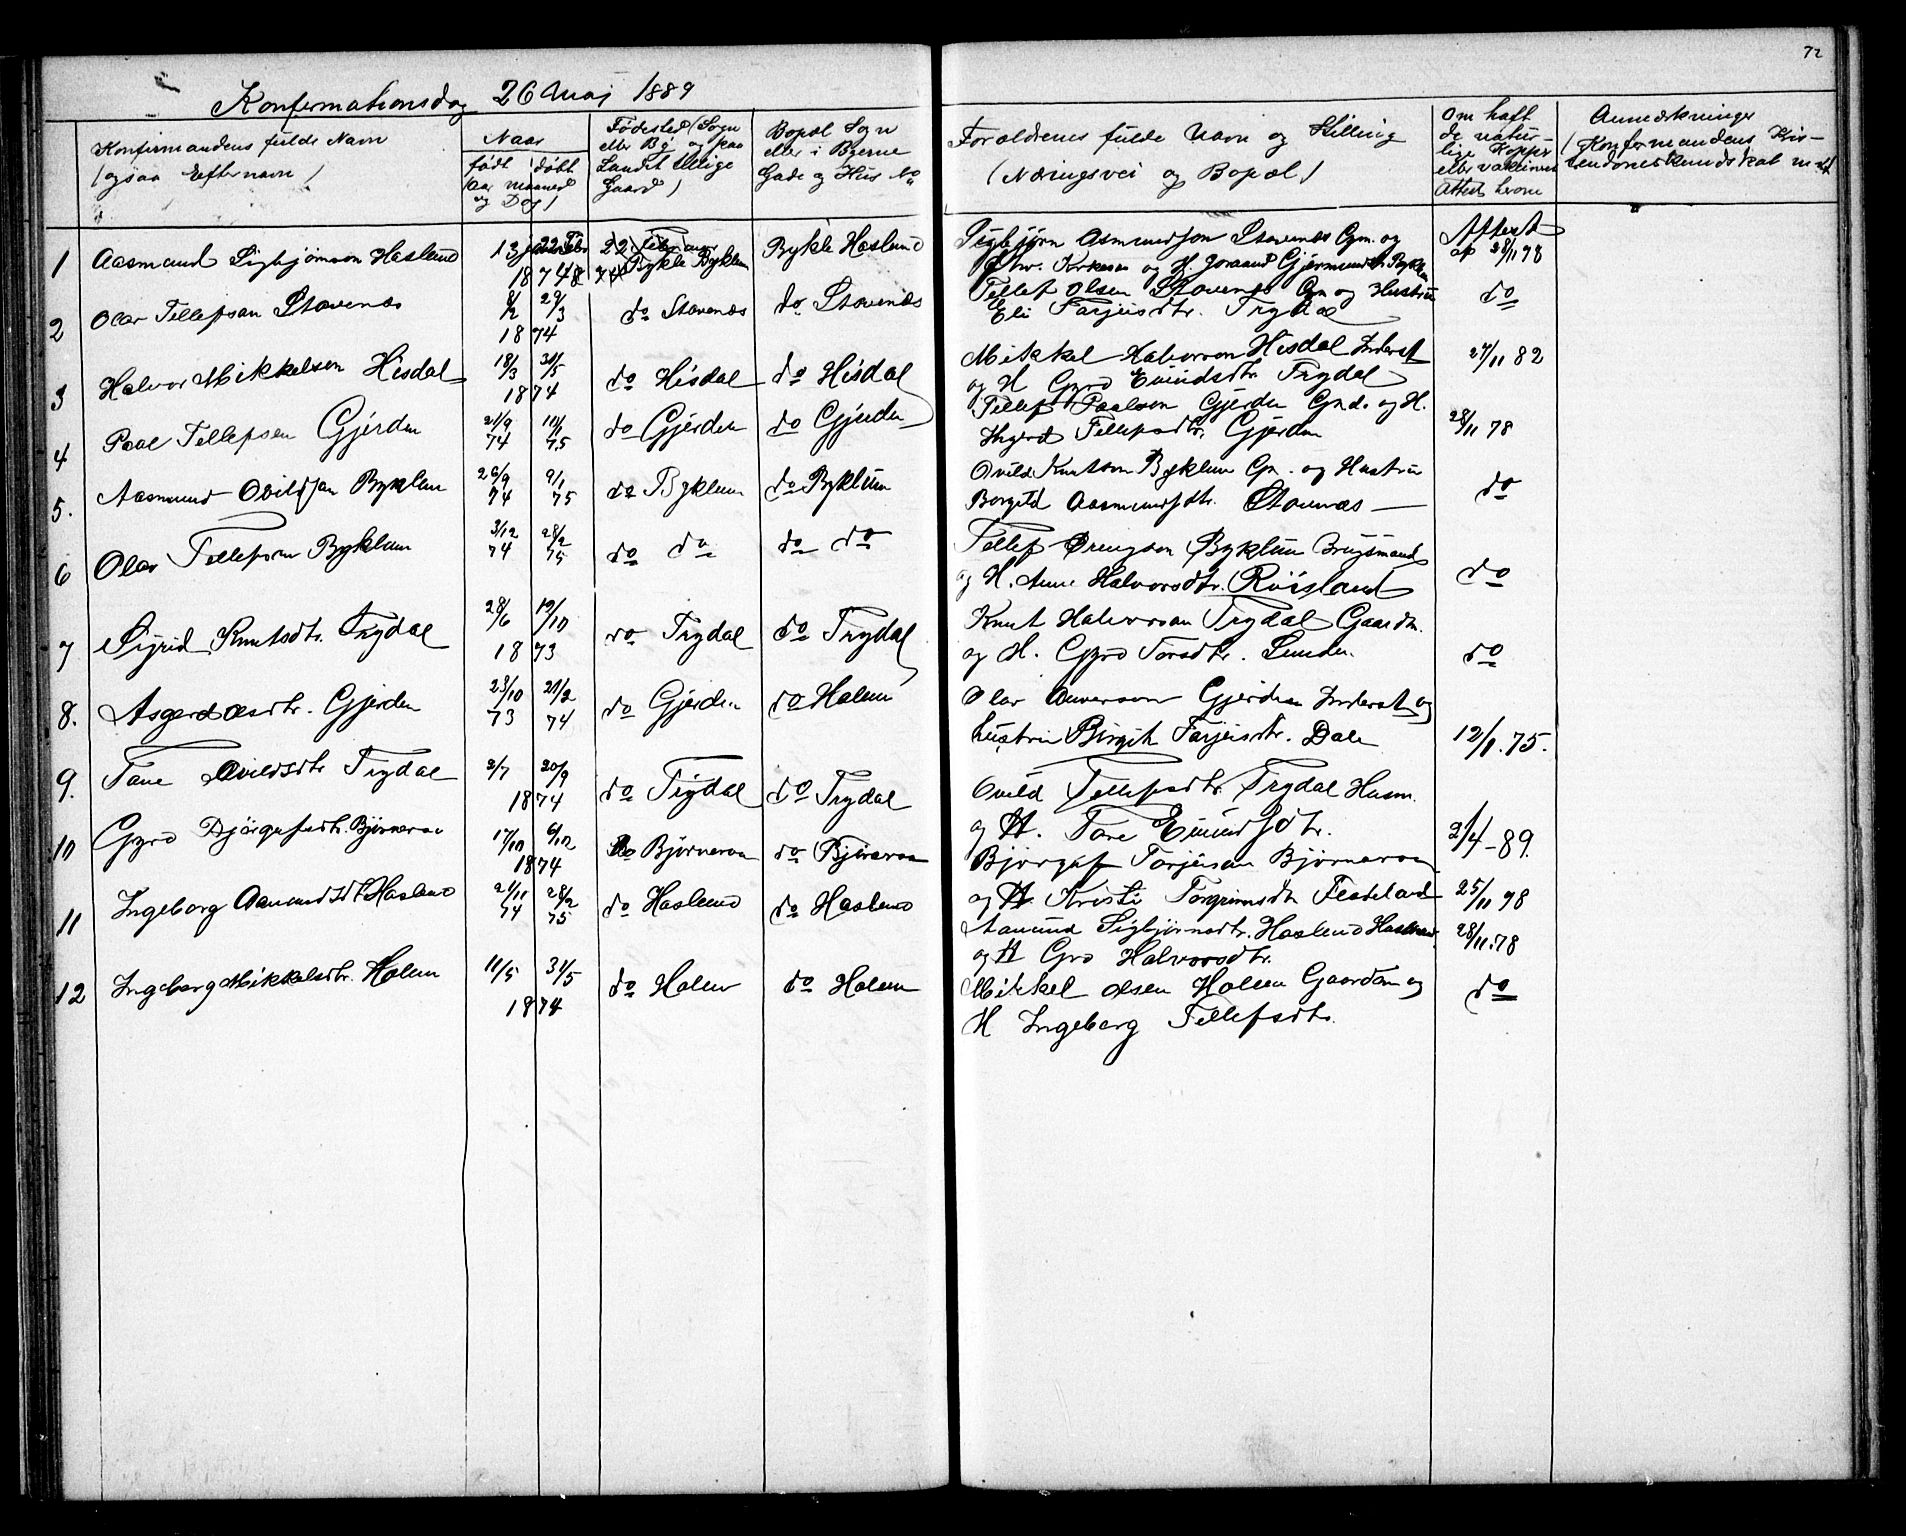 72
Konfirmationsdag 26 Maj 1889
Konfirmandens fulde Navn
(ogsaa Efternavn)
Naar
født døbt
(aar maaned
og Dag)
Fødested (Sogn
eller By og paa
Landet tillige
Gaard)
Bopæl Sogn
eller i Byerne
Gade og Hus No
Forældrenes fulde Navn og Stilling
(Næringsvei og Bopæl)
Om haft
de natur-
lige Kopper
eller vaksineret
Attest herom
Anmærkninger
(Konfirmandens Kris-
tendomskundskab m. m.
1 Aasmund Sigbjørnson Haslund 13 22 Febr Bykle Byklum Bykle Haslund
1874
Sigbjørn Asmundson Stavenæs Gm. og
og H. Joraand Gjermundsdt. Bykle
Attest
af 28/11 78
2 Olav Tellefsen Stavenæs 8/2 29/3 do Stavenæs do Stavenæs
1874
Tellef Olsen Stavenæs Gm og Hustru
Eli Tarjeisdtr. Trydal
do
3 Halvor Mikkelsen Hisdal 18/3 31/5 do Hisdal do Hisdal
1874
Mikkel Halvorson Hisdal Inderst
og H Gyro Eivindsdtr Trydal
27/11 82
4 Paal Tellefsen Gjerden 21/9 74 10/1 75 do Gjerden do Gjerden
Tellef Paalsen Gjerden Gmd. og H.
Tellefsdtr. Gjerden
28/11 78
5. Aasmund Ovildsen Byklum 26/9 74 9/1 75 do Byklum do Byklum
Ovild Knutson Byklum Gm. og Hustru
Borgild Aasmundsdtr. Stavenæs
do
6 Olav Tellefsen Byklum 3/12 74 28/2 75 do do do do
Tellef Drengson Byklum Brugsmand
og H. Anne Halvorsdtr. Røisland
do
7 Sigrid Knutsdtr. Trydal 28/6 19/10 do Trydal do Trydal
1873
Knut Halvorson Trydal Gaardm.
og H. Gyro Torsdtr. Lunden.
do
8. Asgerd Olsdtr. Gjerden 23/10 73 21/2 74 do Gjerden do Holen
Olav Anverson Gjerden Inderst og
hustru Birgit Tarjeisdtr. Dale
12/1. 75.
9. Tane Ovildsdtr Trydal 2/7 20/9 do Trydal do Trydal
1874
Ovild Tellefsdtr Trydal Husm.
og H. Tore Eivindsdtr.
2/4-89.
10 Gyro Bjørgufsdtr. Bjørnevaa 17/10 6/12 do Bjørnevaa do Bjørnevaa
1874
Bjørguf Torjeisen Bjørnevaa
og H. Kristi Torgrimsdtr
25/11 98
11 Ingeborg Aamundsdt Haslund 21/11 74 28/2 75 do Haslund do Haslund
Aamund Sigbjørnsdtr. Haslund
og H Gro Halvorsdtr.
28/11.78
12 Ingeborg Mikkelsdtr. Holen 11/5 31/5 do Holen do Holen
1874
Mikkel Olsen Holen Gaardm og
H Ingeborg Tellefsdtr.
do